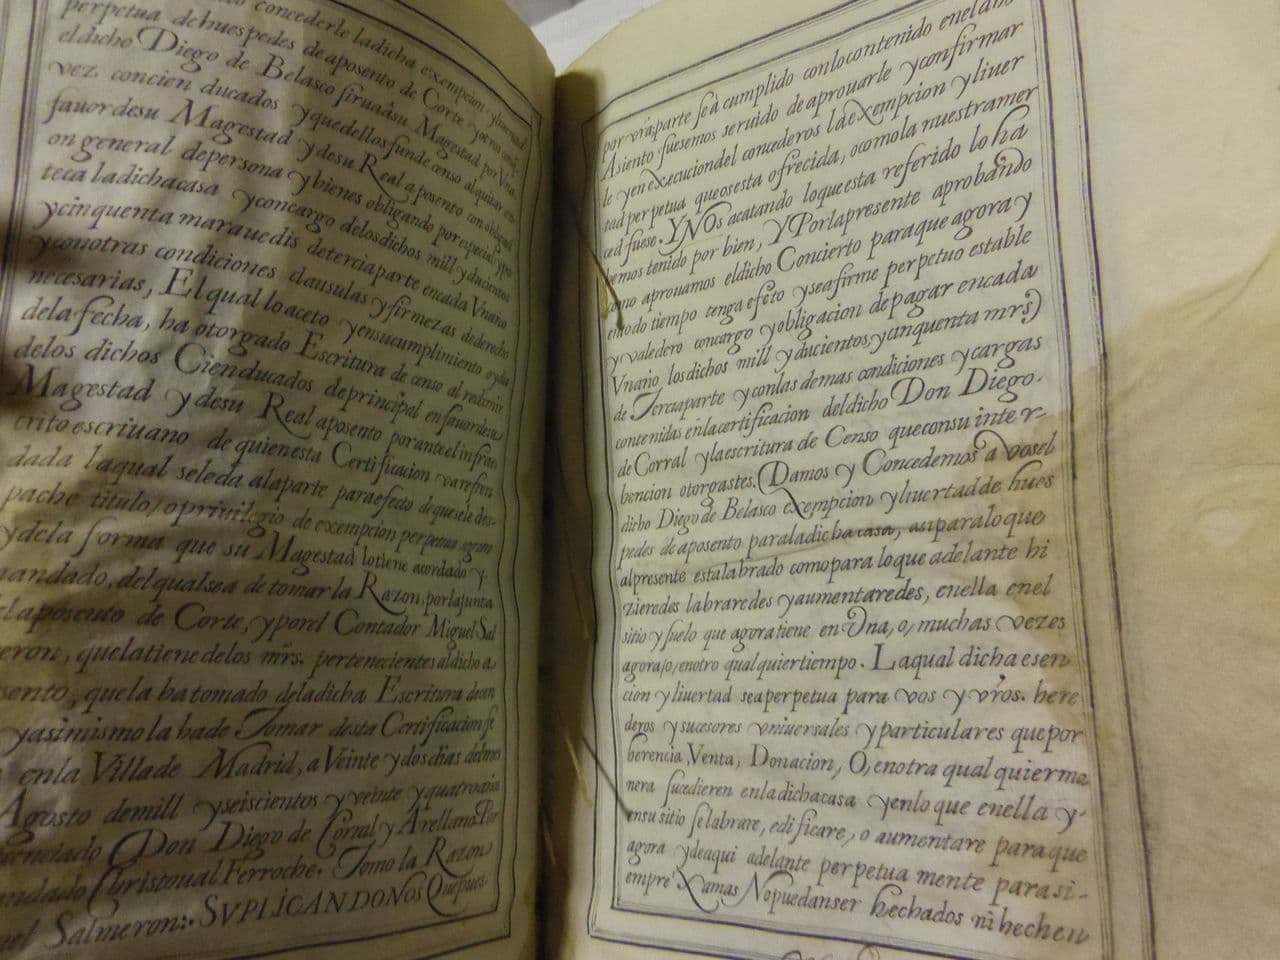 concederle la dicha exempcion yliuertad
perpetua de huespedes de aposento de Corte
eldicho Diego de Belasco siruaasu Magestad por Vna
vez concien ducados yque dellos funde censo alquitar en
fauor desu Magestad ydesu Real aposento con obligaci
on general depersona ybienes obligando por especial ypo
teca ladichacasa yconcargo delosdichos mill yducientos
ycinquenta marauedis deterciaparte encada Vnaño
yconotras condiciones clausulas yfirmezas dederecho
necesarias, Elqual loaceto yensucumplimiento oydia
delafecha, ha otorgado Escritura de censo al redimir
delos dichos Cienducados deprincipal enfauordesu
Magestad ydesu Real aposento poranteelinfra
crito escriuano de quienesta Certificacion varefren
dada laqual seleda alaparte paraefecto dequesele des
pache titulo/o priuilegio de exempcion perpetua segun
ydela forma que su Magestad lotiene acordado y
mandado, delqualsea de tomar la Razon, porlajunta
elaposento de Corte, yporel Contador Miguel Sal
eron, quelatiene delos mrs. pertenecientes aldicho a
sento, que la ha tomado deladicha Escritura decen
yasimismo la hade Tomar desta Certificacion fe
enla Villa de Madrid, a Veinte ydosdias delmes
Agosto demill yseiscientos yveinte yquatroaños
licenciado Don Diego de Corral y Arellano. Por
mandado Christoual Ferroche. Tomo la Razon
uel Salmeron:. SVPLICANDONOS Quepues
por vra. parte seà cumplido conlocontenido enel
Asiento fuesemos seruido de aprouarle yconfirmar
le yen execuciondel concederos laexempcion yliuer
tad perpetua queosesta ofrecida, ocomola nuestramer
ced fuese. YNOs acatando loqueesta referido lo ha
bemos tenido por bien, YPorlapresente aprobando
como aprouamos eldicho Concierto paraque agoray
entodo tiempo tenga efeto yseafirme perpetuo estable
y valedero concargo yobligacion depagar encada
Vnaño, losdichos mill yducientosyycinquenta mrs)
de Terciaparte yconlas demas condiciones ycargas
contenidas enlacertificacion deldicho Don Diego.
de Corral ylaescritura de Censo queconsu inter-
bencion otorgastes. Damos y Concedemos a vosel
dicho Diego de Belasco exempcion yliuertad de hues
pedes de aposento paraladichacasa, asiparaloque
alpresente estalabrado comopara loque adelante hi
zieredes labraredes yaumentaredes, enella enel
sitio y suelo que agoratiene en Vna, o, muchas vezes
agora/o/enotro qualquiertiempo. Laqual dicha esen
cion yliuertad seaperpetua para vos y vros. here
deros ysucesores vniuersales yparticulares quepor
herencia, Venta, Donacion, O, enotra qualquierma
nera sucedieren enladichacasa yenlo que enella y-
ensu sitio selabrare, edificare, o aumentare para que
agora ydeaqui adelante perpetua mente parasi-
empre Xamas Nopuedanser hechados ni hechen